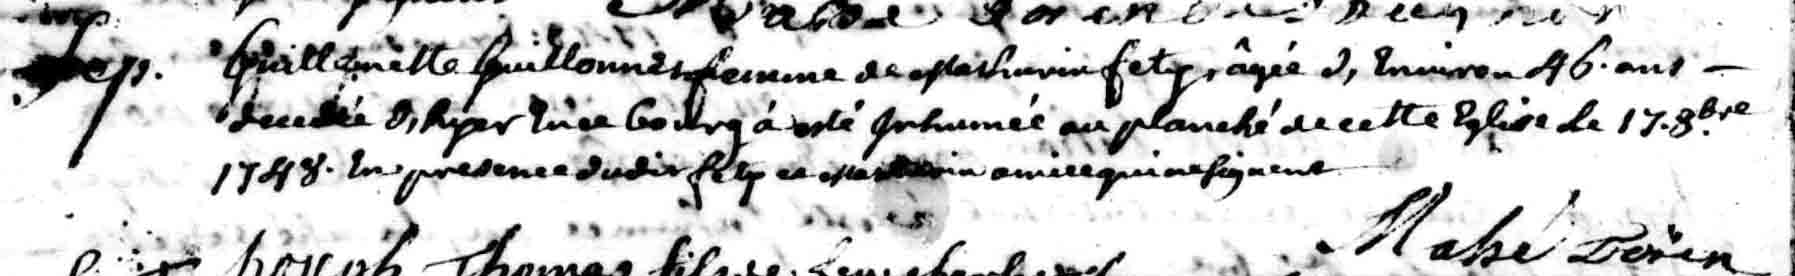 Sep. Guillemette Guillonnet femme de Mathurin fety, âgée d, Environ 46. ans —
decedée d, hyer En ce bourg à esté Inhumée au planché de cette Eglise Le 17. 8bre
1748. En presence dudit fety et Mathurin amice qui ne signent
Mahé Doïen
Joseph Thomas fils de